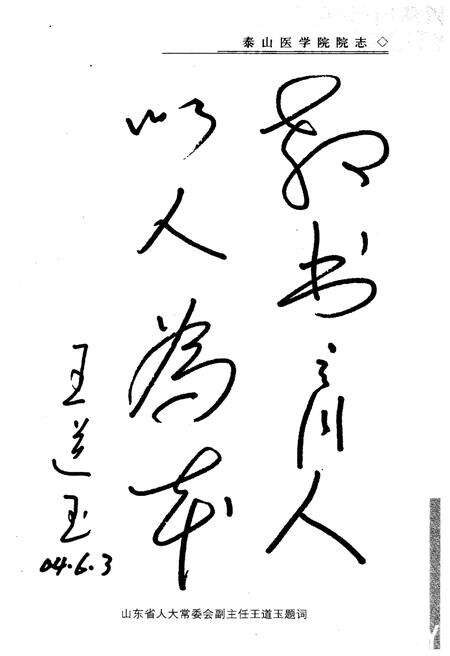 泰山医学院院志◇
教书育人
以人為本
王道玉
04.6.3
山东省人大常委会副主任王道玉题词